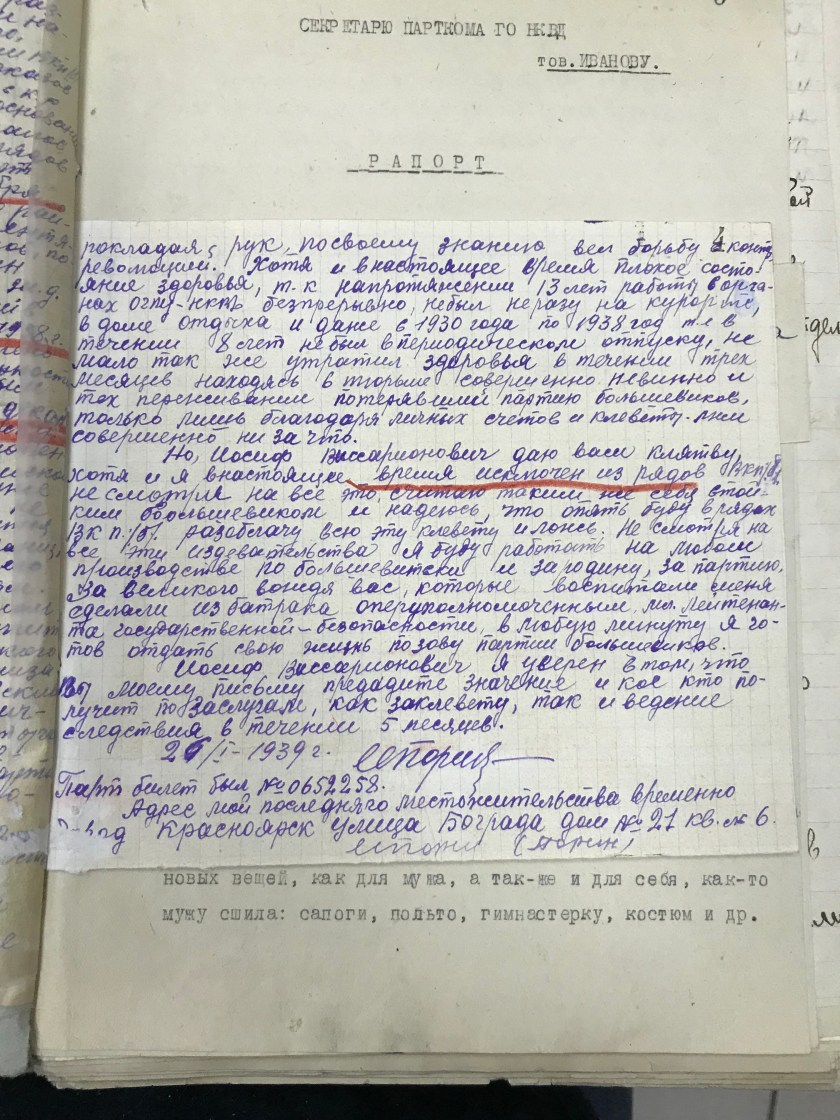 СЕКРЕТАРЮ ПАРТКОМА ГО НКВД
тов. ИВАНОВУ.
РАПОРТ
4
покладая рук, посвоему знанию вел борьбу с контр
революцией. Хотя и внастоящее время плохое состо-
яние здоровья, т-к напротяжении 13 лет работы в орга-
нах огпу-нквд безпрерывно, небыл неразу на курорте,
в доме отдыха и даже с 1930 года по 1938 год т-е в
течении 8 лет не был в периодическом отпуску, не
мало так же утратил здоровья в течении трех
месяцев находясь в тюрьме совершенно невинно и
тех переживании потерявший партию большевиков,
только лишь благодаря личных счетов и клеветы
совершенно ни за что.
Но, Иосиф Виссарионович даю вам клятву,
хотя и я внастоящее время исключен из рядов ВКП/б/,
не смотря на все это, считаю таким же себя стой-
ким большевиком и надеюсь, что опять буду в рядах
ВКП/б/. Разоблачу всю эту клевету и ложь. Не смотря на
все эти издевательства я буду работать на любом
производстве по большевитски и за родину, за партию.
За великого вождя вас, которые воспитали меня
сделали из батрака оперуполномоченным, мл. лейтенан-
та государственной-безопасности, в любую минуту я го-
тов отдать свою жизнь позову партии большевиков.
Иосиф Виссарионович я уверен в том, что
Вы моему письму предадите значение и кое кто по-
лучит по заслугам, как заклевету, так и ведение
следствия в течении 5 месяцев.
/I-1939 г.
Парт билет был № 0652258.
Адрес мой последняго местожительства временно
Красноярск улица Бограда дом № 21 кв. № 6.
новых вещей, как для мужа, а так-же и для себя, как-то
мужу сшила: сапоги, польто, гимнастерку, костюм и др.